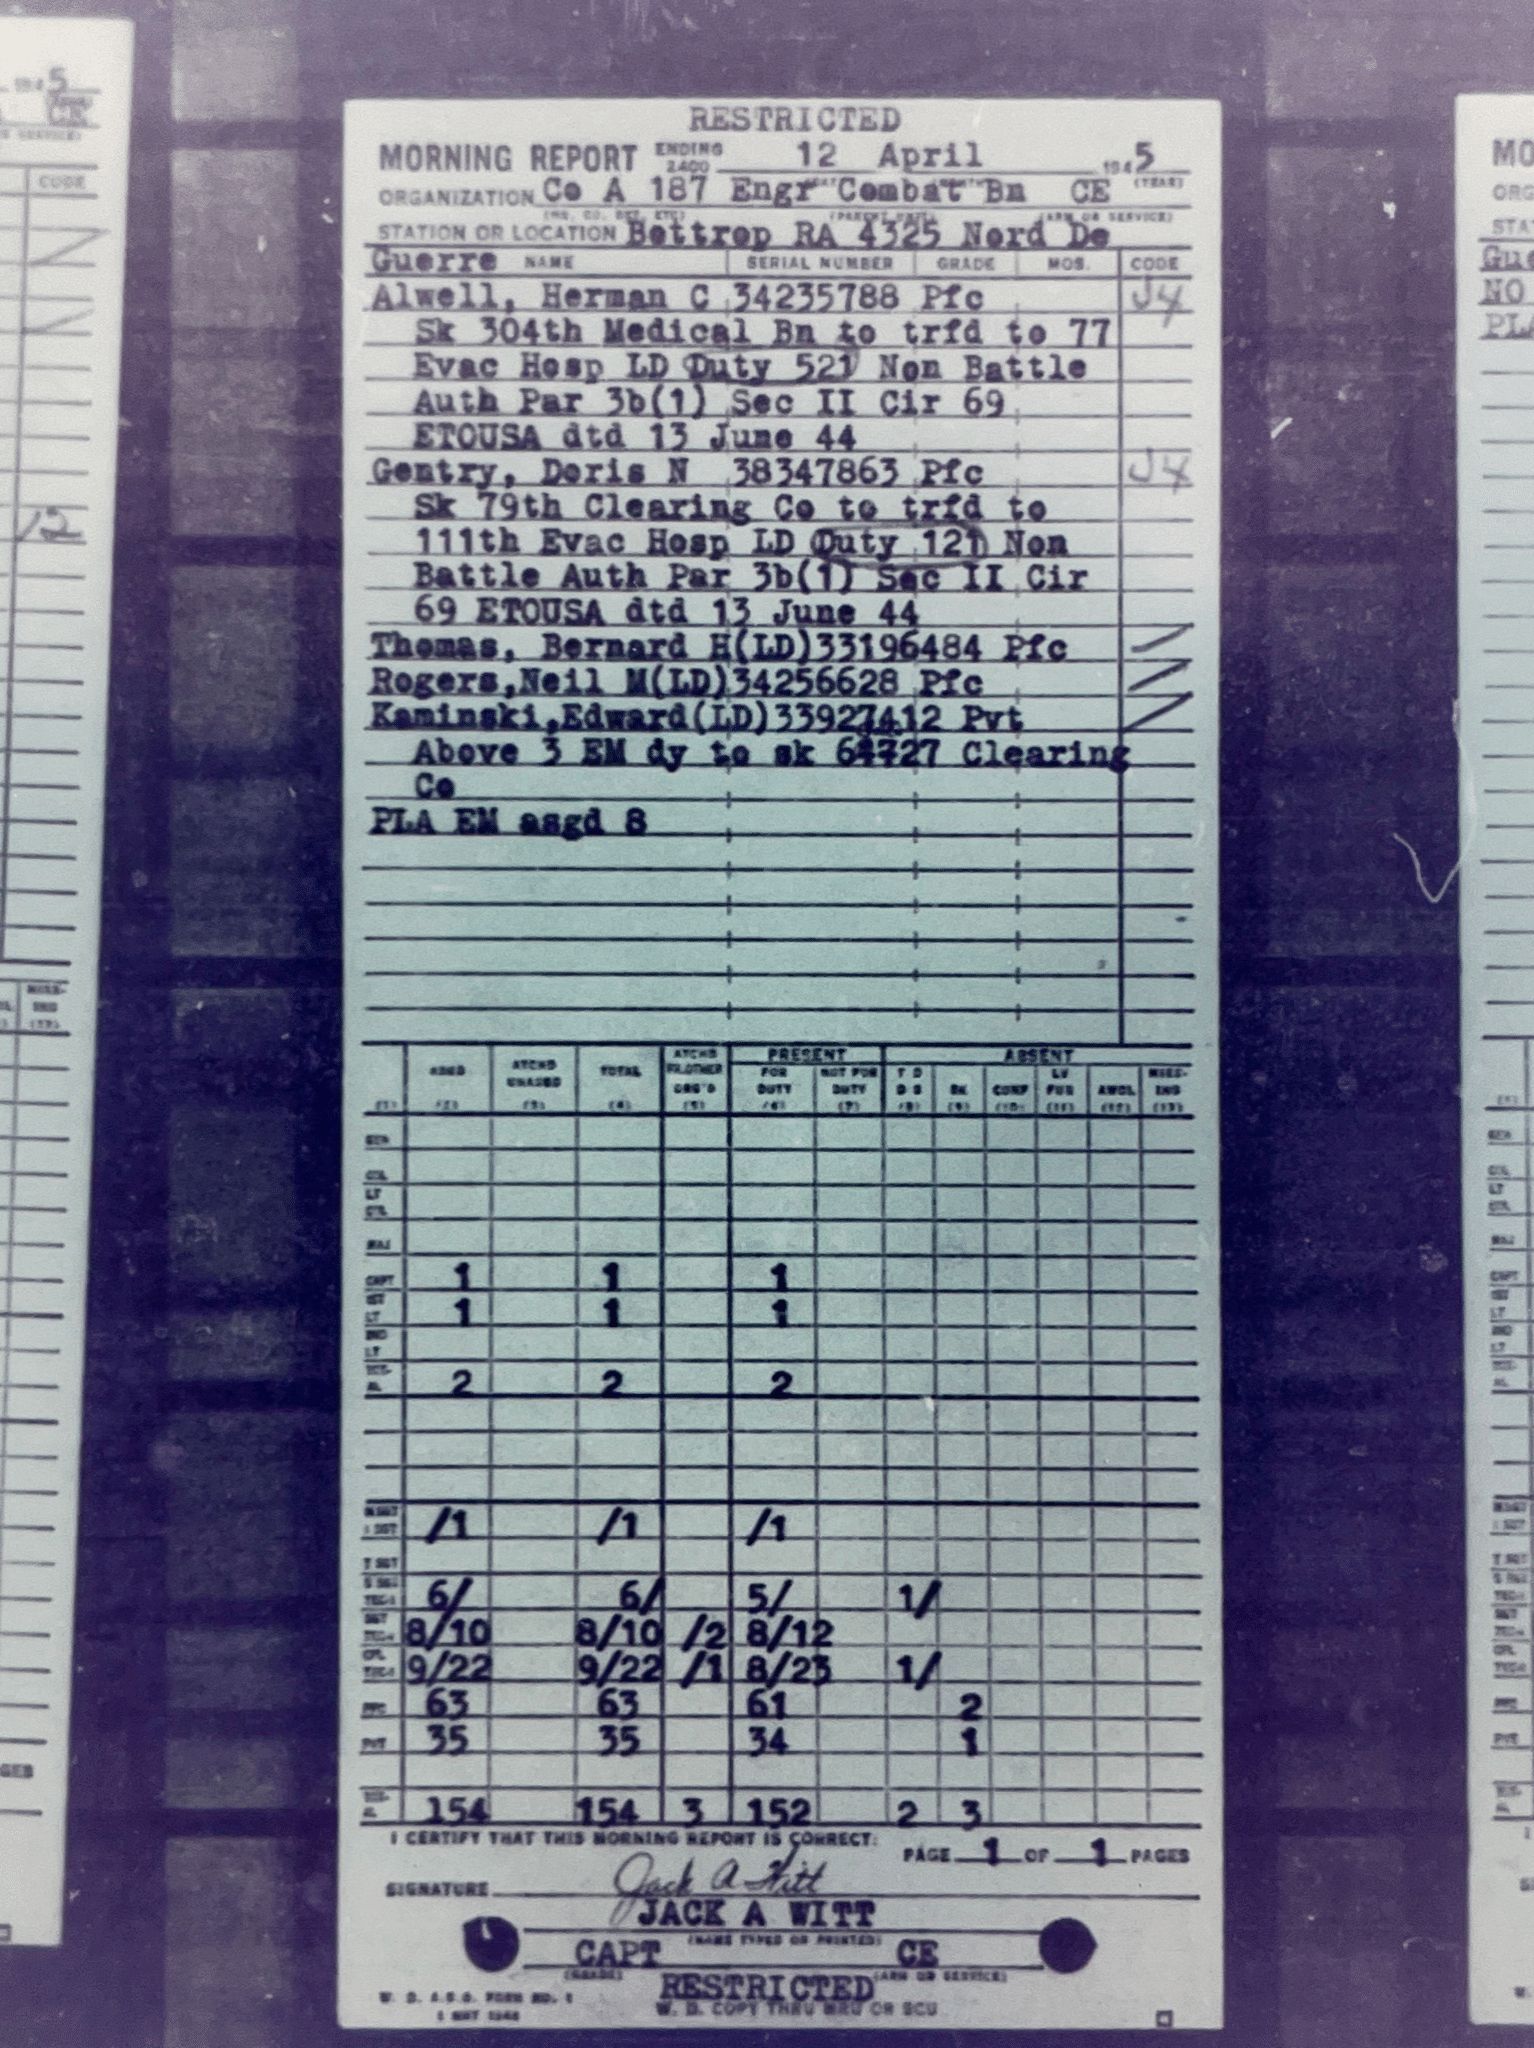 RESTRICTED
MORNING REPORT ENDING 2400 12 April 1945
ORGANIZATION Co A 187 Engr Combat Bn CE (YEAR)
(HQ, CO, DET, ETC) (PARENT UNIT) (ARM OR SERVICE)
STATION OR LOCATION Bottrop RA 4325 Nord De
Guerre NAME SERIAL NUMBER GRADE MOS. CODE
Alwell, Herman C 34235788 Pfc J4
Sk 304th Medical Bn to trfd to 77
Evac Hosp LD Duty 521 Non Battle
Auth Par 3b(1) Sec II Cir 69
ETOUSA dtd 13 June 44
Gentry, Doris N 38347863 Pfc J4
Sk 79th Clearing Co to trfd to
111th Evac Hosp LD Duty 121 Non
Battle Auth Par 3b(1) Sec II Cir
69 ETOUSA dtd 13 June 44
Thomas, Bernard H(LD)33196484 Pfc
Rogers,Neil M(LD)34256628 Pfc
Kaminski,Edward(LD)33927412 Pvt
Above 3 EM dy to sk Clearing
Co
PLA EM asgd 8
PRESENT ABSENT
ASGD ATCHD UNASGD TOTAL ATCHD FR.OTHER ORG'D FOR DUTY NOT FOR DUTY T D D S SK CONF LV FUR AWOL MISS-ING
(1) (2) (3) (4) (5) (6) (7) (8) (9) (10) (11) (12) (13)
GEN
COL
LT COL
MAJ
CAPT 1 1 1
1ST LT 1 1 1
2ND LT
TOT-AL 2 2 2
M SGT 1 SGT /1 /1 /1
T SGT
S SGT TEC-3 6/ 6/ 5/ 1/
SGT TEC-4 8/10 8/10 /2 8/12
CPL TEC-5 9/22 9/22 /1 8/23 1/
PFC 63 63 61 2
PVT 35 35 34 1
TOT-AL 154 154 3 152 2 3
I CERTIFY THAT THIS MORNING REPORT IS CORRECT:
PAGE 1 OF 1 PAGES
SIGNATURE Jack A Witt
JACK A WITT
(NAME TYPED OR PRINTED)
CAPT CE
(GRADE) (ARM OR SERVICE)
RESTRICTED
W. D. A.G.O. FORM NO. 1
1 MAY 1944
W. D. COPY THRU MRU OR SCU